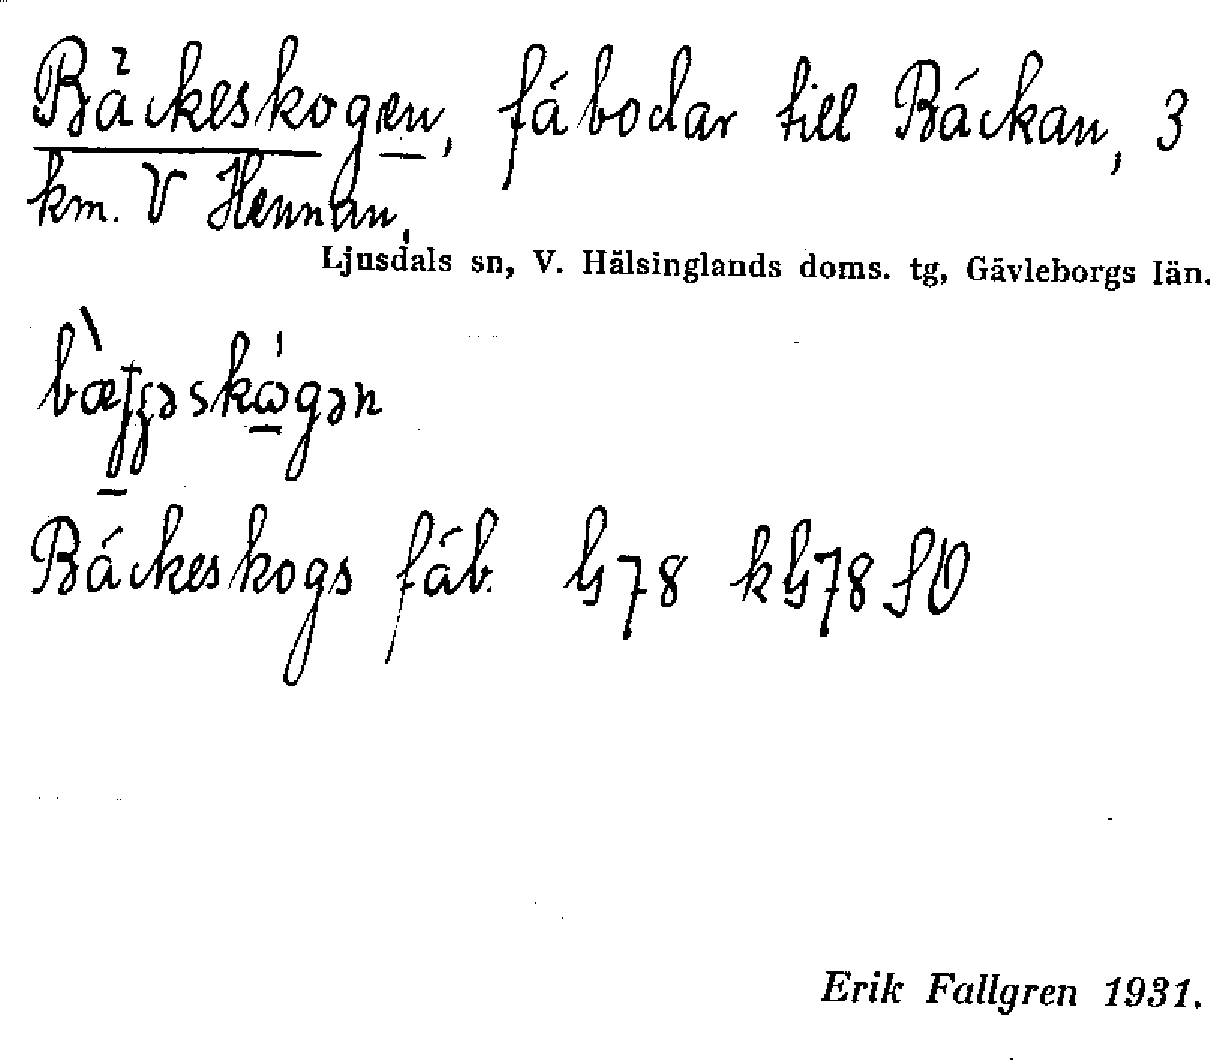 Bäckeskogen, fäbodar till Bäckan, 3
km. V Hennan,
Ljusdals sn, V. Hälsinglands doms. tg, Gävleborgs län.
Bäckeskogs fäb. G78 kG78 SO
Erik Fallgren 1931.